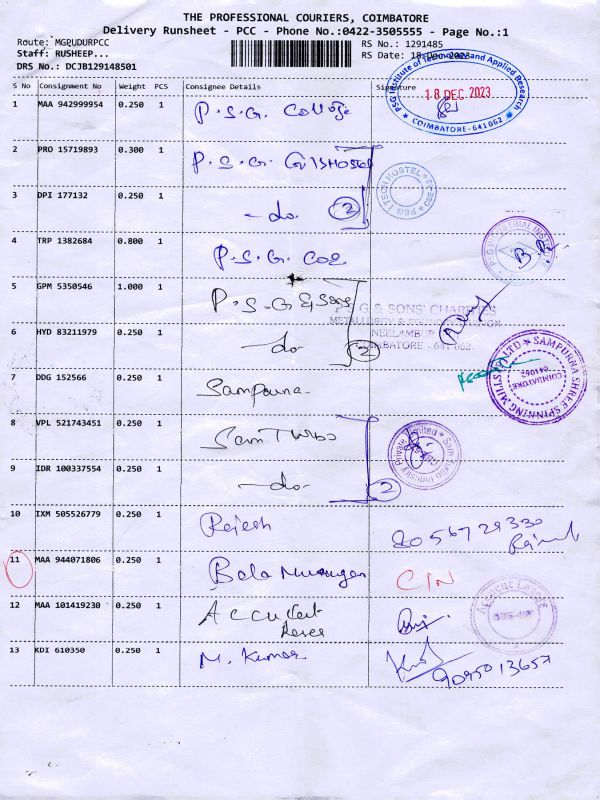 THE PROFESSIONAL COURIERS, COIMBATORE
Delivery Runsheet - PCC - Phone No.:0422-3505555 - Page No.:1
Route: MGPUDURPCC RS No.: 1291485
Staff: RUSHEEP... RS Date: 18-Dec-2023
DRS No.: DCJB129148501
S No Consignment No Weight PCS Consignee Details Signature
PSG Institute of Technology and Applied Research
18 DEC 2023
COIMBATORE - 641 062
1 MAA 942999954 0.250 1 P.S.G. College
2 PRO 15719893 0.300 1 P.S.G. G
PSG iTECH HOSTEL
3 DPI 177132 0.250 1 -do- 2
4 TRP 1382684 0.800 1 P.S.G. COE
PSG INDUSTRIAL INSTITUTE
5 GPM 5350546 1.000 1 P.S.G & Sons
P S G & SONS' CHARITIES
METALLURGY & FOUNDRY DIVISION
NEELAMBUR
COIMBATORE - 641 062
6 HYD 83211979 0.250 1 -do- 2
SAMPURNA SHREE SPINNING MILLS (P) LTD
COIMBATORE
641062
7 DDG 152566 0.250 1 Sampurna
8 VPL 521743451 0.250 1 Sam Turbo
Sam Turbo Industry Private Limited
9 IDR 100337554 0.250 1 -do- 2
10 IXM 505526779 0.250 1 Rajesh 8056729330
11 MAA 944071806 0.250 1 Bala Murugan C/N
12 MAA 101419230 0.250 1 Accurate
13 KDI 610350 0.250 1 M. Kumar
9095013657